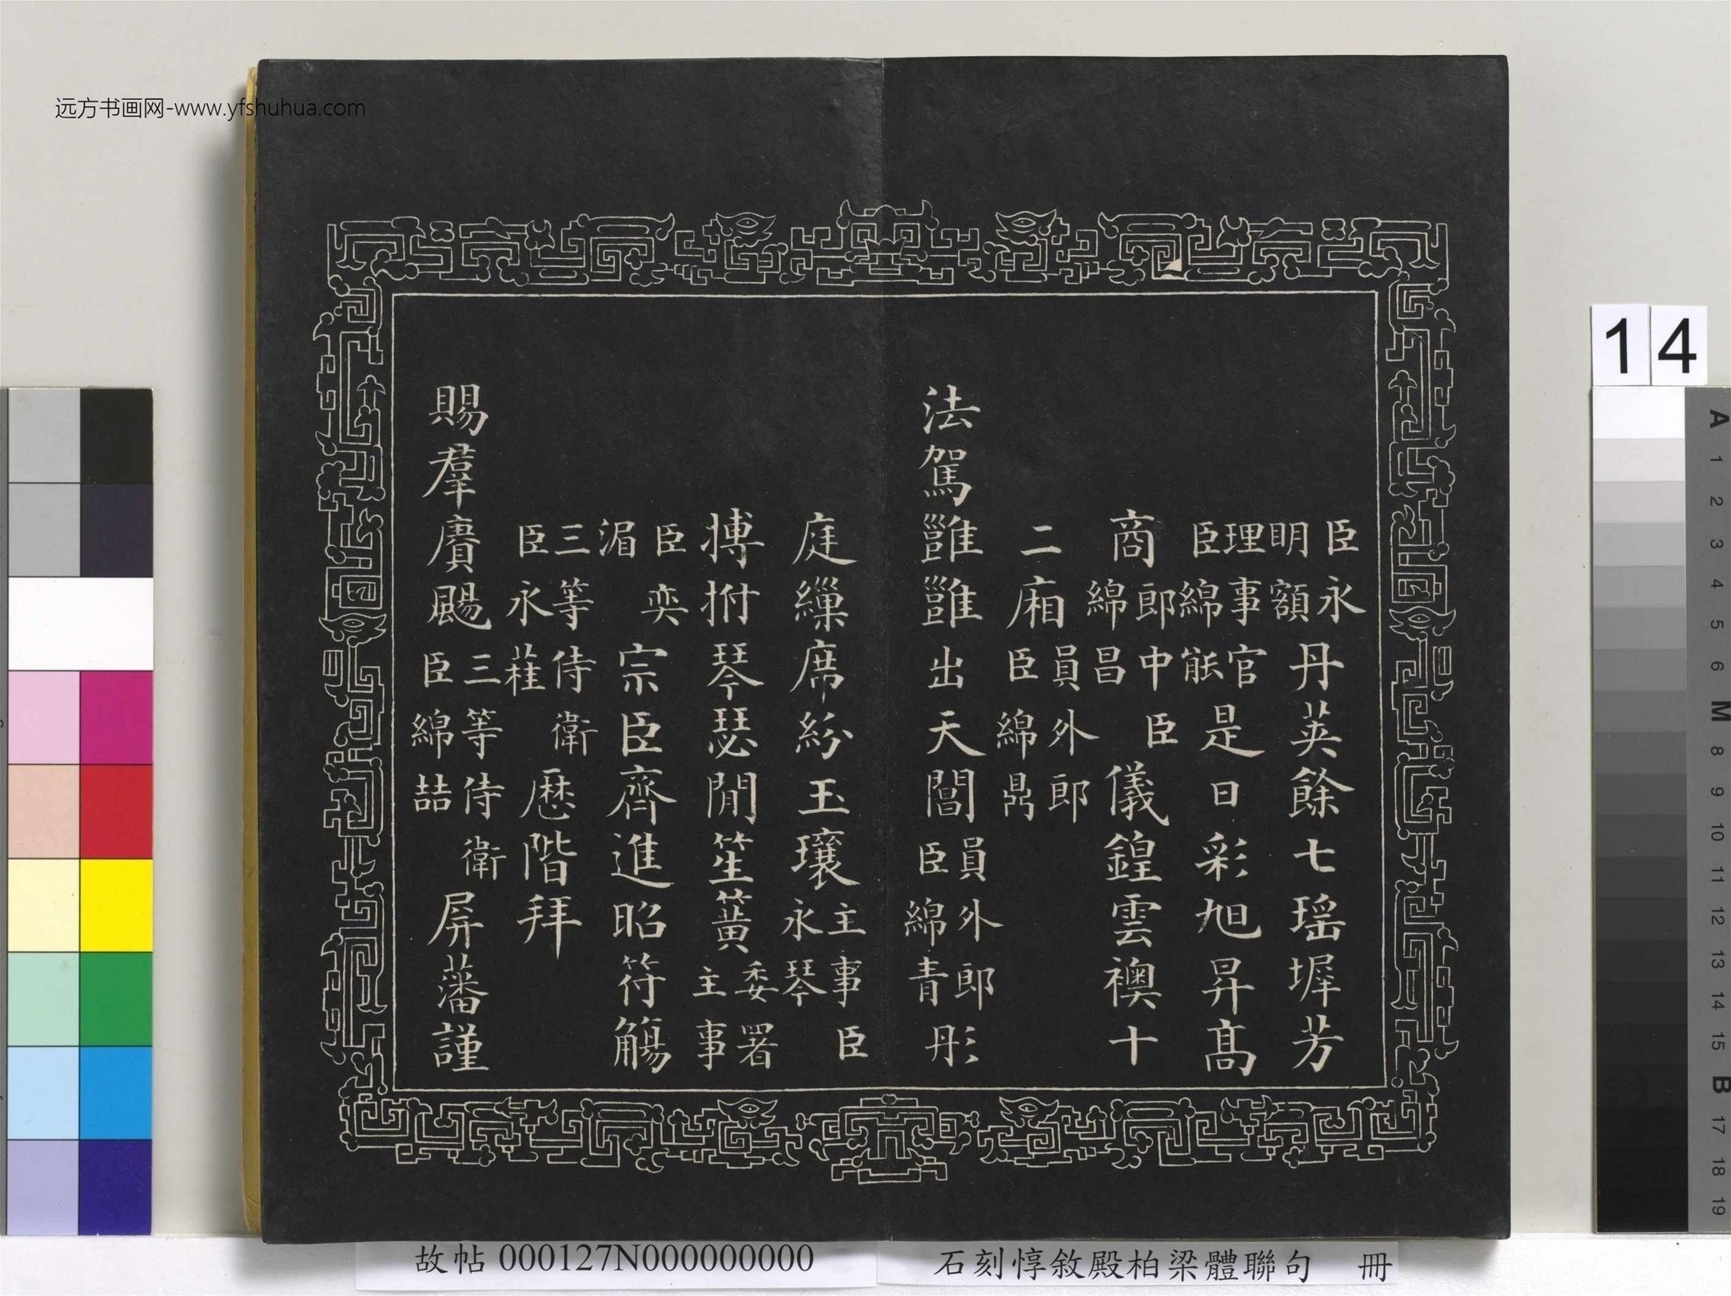 远方书画网-www.yfshuhua.com
臣永明額丹英餘七瑤墀芳
理事官臣綿能是日彩旭昇高
商郎中臣綿昌儀鍠雲襖十
二廂員外郎臣綿鼎
法駕雝雝出天閶員外郎臣綿青彤
庭繅席紛玉瓖主事臣永琴
搏拊琴瑟閒笙簧委署主事
臣奕湄宗臣齊進昭符觴
三等侍衛臣永萑歷階拜
賜羣賡颺三等侍衛臣綿喆屏藩謹
14
A 1 2 3 4 5 6 M 8 9 10 11 12 13 14 15 B 17 18 19
故帖 000127N000000000
石刻惇敘殿柏梁體聯句 冊